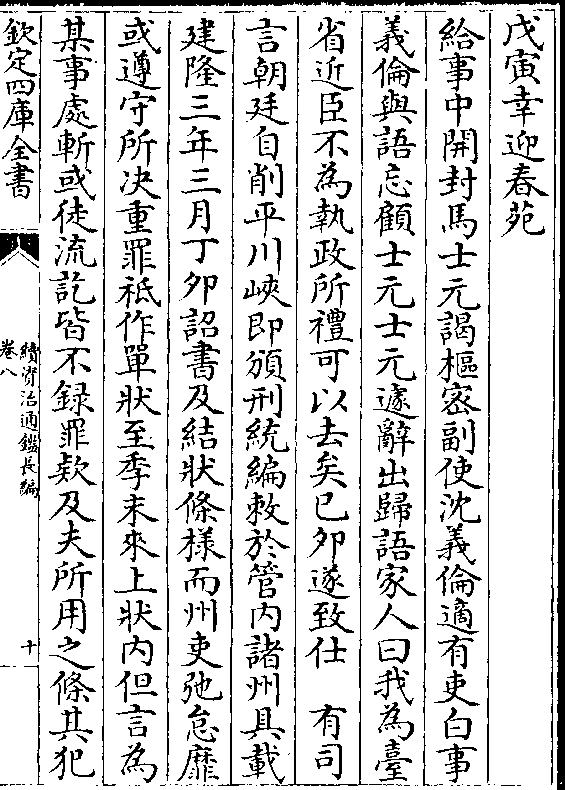 戊寅幸迎春苑
給事中開封馬士元謁樞密副使沈義倫適有吏白事
義倫與語忘顧士元士元遽辭出歸語家人曰我為臺
省近臣不為執政所禮可以去矣已卯遂致仕　有司
言朝廷自削平川峽即頒刑統編敕於管内諸州具載
建隆三年三月丁夘詔書及結狀條様而州吏弛怠靡
或遵守所决重罪祗作單狀至季末來上狀内但言為
某事處斬或徒流訖皆不録罪欵及夫所用之條其犯
欽定四庫全書
續資治通鑑長編
卷八
十